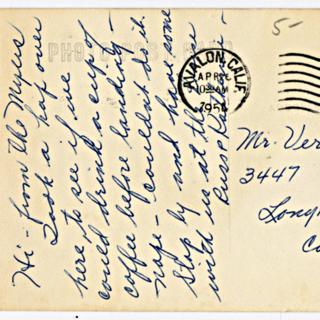 Hi - from the Myers
Took a hop over
here to see if we
could drink a cup of
coffee before landing -
nope - couldn't do it.
Stop by and have some
with us at the
PHOTO POST CARD
AVALON, CALIF.
APR
10 AM
195
5-
Mr. Ver
3447
Long
Ca